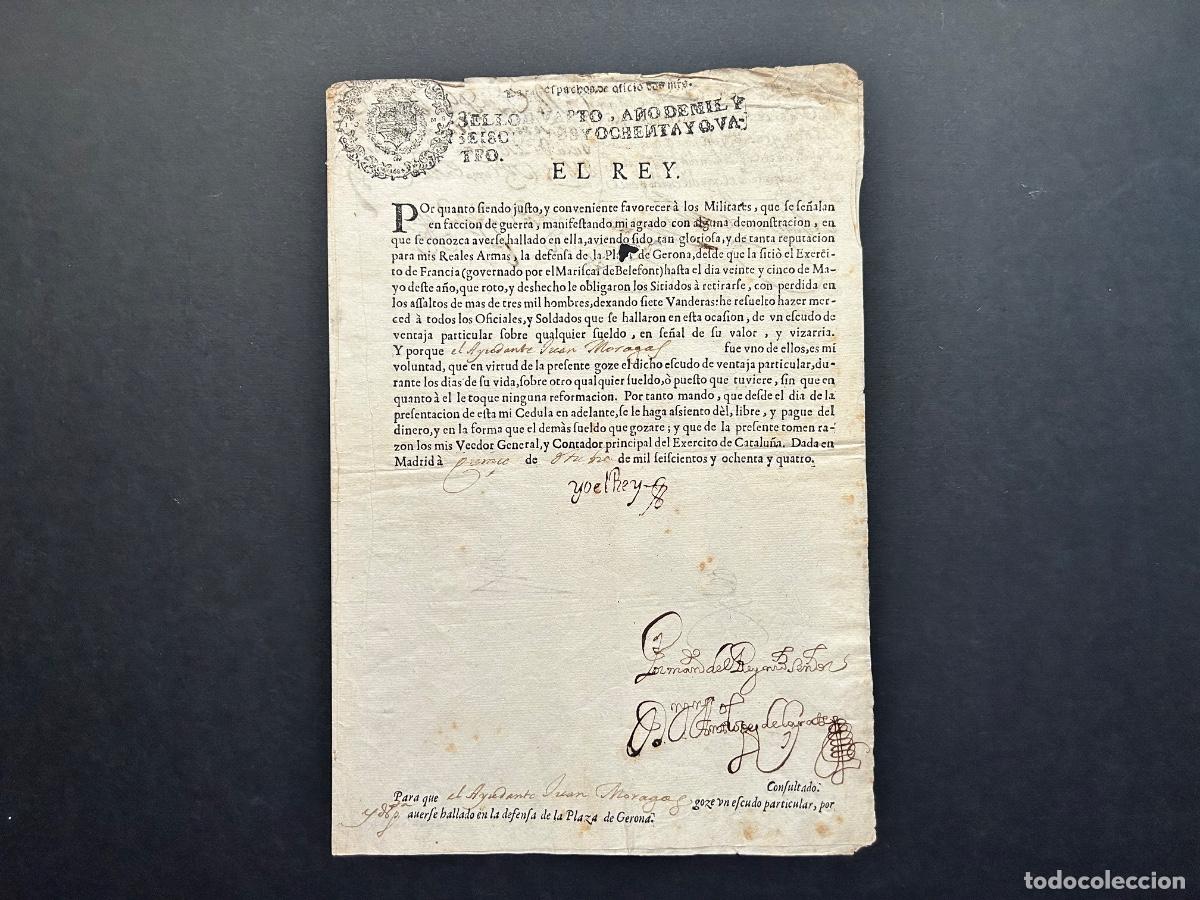 despachos de oficio dos mrs.
SELLO QVARTO, AÑO DE MIL Y
SEISC Y OCHENTA Y QVA-
TRO.
EL REY.
POr quanto siendo justo, y conveniente favorecer à los Militares, que se señalan
en faccion de guerra, manifestando mi agrado con alguna demonstracion, en
que se conozca averse hallado en ella, aviendo sido tan gloriosa, y de tanta reputacion
para mis Reales Armas, la defensa de la Plaza de Gerona, desde que la sitiò el Exerci-
to de Francia (governado por el Mariscal de Belefont) hasta el dia veinte y cinco de Ma-
yo deste año, que roto, y deshecho le obligaron los Sitiados à retirarse, con perdida en
los assaltos de mas de tres mil hombres, dexando siete Vanderas: he resuelto hazer mer-
ced à todos los Oficiales, y Soldados que se hallaron en esta ocasion, de vn escudo de
ventaja particular sobre qualquier sueldo, en señal de su valor, y vizarria.
Y porque el Ayudante Juan Moragas fue vno de ellos, es mi
voluntad, que en virtud de la presente goze el dicho escudo de ventaja particular, du-
rante los dias de su vida, sobre otro qualquier sueldo, ò puesto que tuviere, sin que en
quanto à el le toque ninguna reformacion. Por tanto mando, que desde el dia de la
presentacion de esta mi Cedula en adelante, se le haga assiento dèl, libre, y pague del
dinero, y en la forma que el demàs sueldo que gozare; y que de la presente tomen ra-
zon los mis Veedor General, y Contador principal del Exercito de Cataluña. Dada en
Madrid à de Otubre de mil seiscientos y ochenta y quatro.
yo el Rey
Por mandº del Rey nrō Señor
Consultado.
Para que el Ayudante Juan Moragas, goze vn escudo particular, por
averse hallado en la defensa de la Plaza de Gerona.
todocoleccion